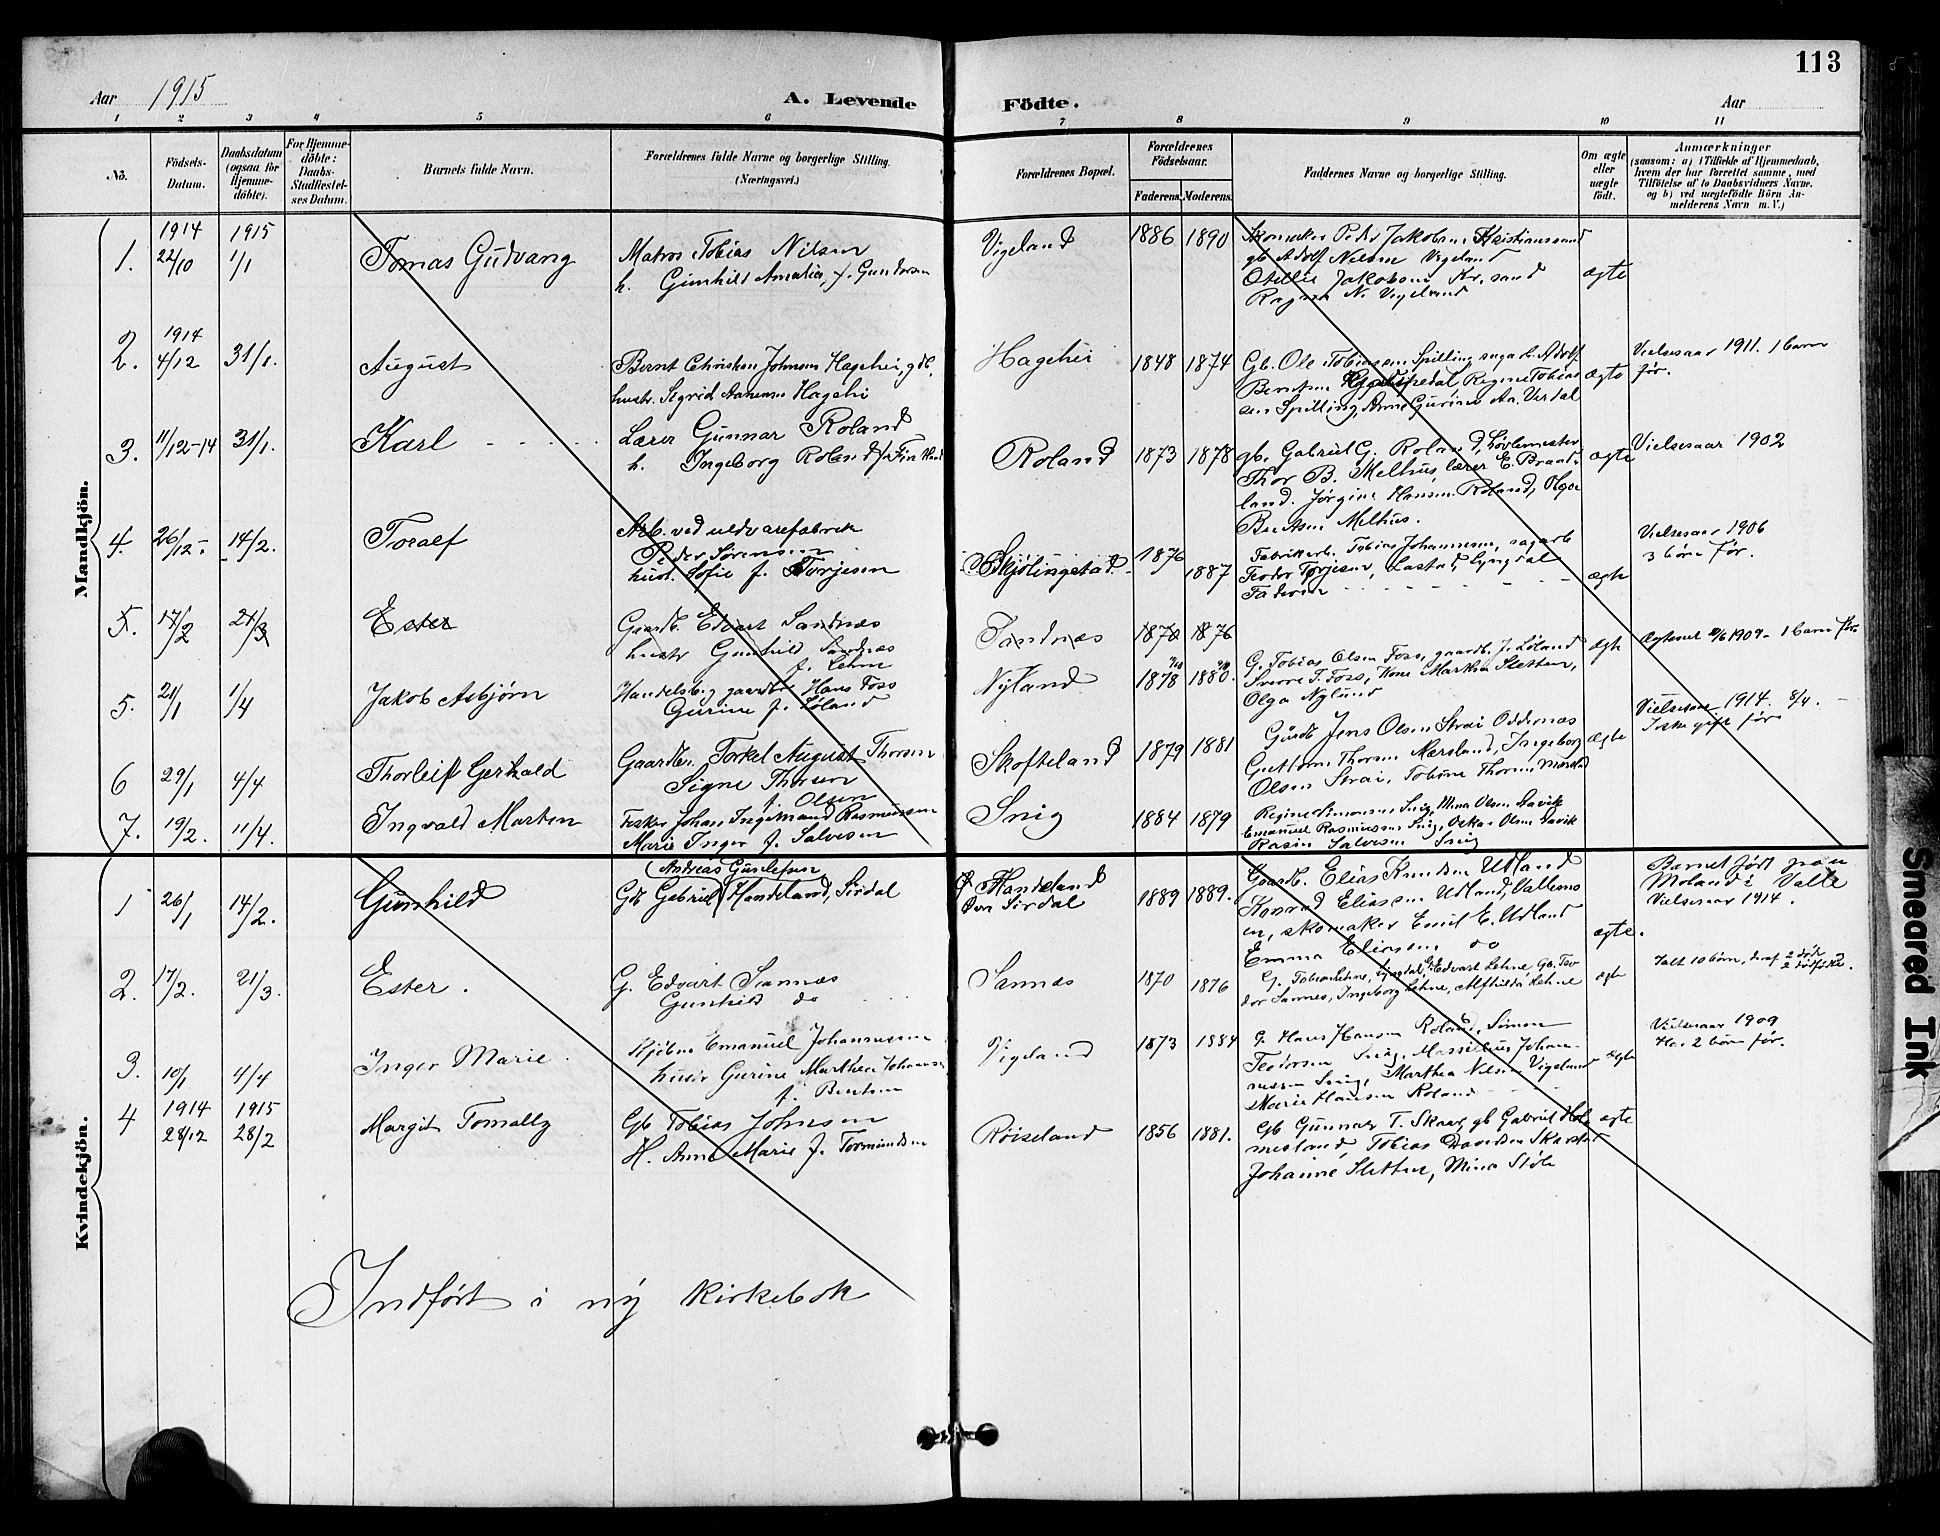 113
Aar 1915
A. Levende Födte.
Aar
1 2 3 4 5 6 7 8 9 10 11
No.
Födsels-Datum.
Daabsdatum (ogsaa for Hjemme-döbte).
For Hjemme-döbte: Daabs-Stadfæstel-ses Datum.
Barnets fulde Navn.
Forældrenes fulde Navne og borgerlige Stilling.
(Næringsvei.)
Forældrenes Bopæl.
Forældrenes Födselsaar.
Faderens. Moderens.
Faddernes Navne og borgerlige Stilling.
Om ægte eller uægte födt.
Anmærkninger
(saasom: a) i Tilfælde af Hjemmedaab,
hvem der har forrettet samme, med
Tilföielse af to Daabsvidners Navne.
og b) ved uægtefödte Börn An-
melderens Navn m. V.)
Mandkjön.
1. 1914 22/10 1915 1/1 Tomas Gudvang
Matros Tobias Nilsen
h. Gunhild Amalia, f. Gundersen
Vigeland 1886 1890
Skomaker Peder Jakobsen Kristianssand
gb Adolf Nilsen Vigeland
Otellie Jakobsen Kr. sand
Ragna N. Vigeland
ægte
2. 1914 4/12 31/1. August
Bernt Christian Johnsen Hagehei, gdb.
hustr. Sigrid Aanensen Hagehei
Hagehei 1848 1874
Gb. Ole Tobiasen Spilling, Adolf
Berntsen, Regine Tobias
sen Spilling, Anne Gurine Aa. Verdal
ægte
Vielsesaar 1911. 1 barn
før.
3. 11/12-14 31/1. Karl
Lærer Gunnar Roland
h. Ingeborg Roland f.
Roland 1873 1878
gb. Gabriel G. Roland,
Thor B. Melhus, lærer E. Braad-
land. Jørgine Hansen Roland, Olga
Berntsen Melhus.
ægte
Vielsesaar 1902
4. 26/12- 14/2. Toralf
Arb. ved uldvarefabrik
Peder Sørensen
hust. Sofie f. Torjesen
Skjölingstad. 1876 1887
Fabrikarb. Tobias Johannesen, sagarb
Teodor Torjesen, Lastad, Lyngdal
Faderen
ægte
Vielsesaar 1906
3 børn før.
5. 17/2 21/3 Ester
Gaardb. Edvart Sandnæs
hustr Gunhild Sandnæs
f. Lehne
Sandnæs 1870 1876
ægte
1 barn før
5. 21/1 1/4 Jakob Asbjørn
Handelsb. og gaardbr Hans Foss
Gurine f. Løland
Nyland 1878 1880.
G. Tobias Olsen Foss, gaardb. J. Løland
Sverre T. Foss, Kone Martha Sletten,
Olga Nylund
6 29/1 4/4 Thorleif Gerhald
Gaardbr. Torkel August Thorsen
Signe Thorsen
f. Olsen
Skofteland 1879 1881
Gårdb Jens Olsen Strai Oddernæs
Guttorm Thorsen Nærsland, Ingeborg
Olsen Strai, Tobine Thorsen
ægte
Vielsesaar 1914. 8/4.
Ikke gift før
7. 19/2. 11/4. Ingvald Marten
Fisker Johan Ingemand Rasmussen
Marie Inger f. Salvesen
Snig 1884 1879
Regine Simonsen Snig, Mina Olsen Davik
Emanuel Rasmussen Snig, Oskar Olsen Davik
Rasin Salvesen Snig
Kvindekjön.
1 26/1 14/2. Gunhild
Andreas Gunlefsen
Gb Gabriel Handeland, Sirdal
Handeland
Øvr Sirdal
1889 1889.
Gaardb. Elias Knudsen Udland
Konrad Eliasen Udland,
en, skomaker Emil E. Udland
Emma Eliasen do
ægte.
Barnet født paa
Moland i Valle
Vielsesaar 1914.
2. 17/2. 21/3. Ester.
G. Edvart Sannæs
Gunhild do
Sannæs 1870 1876
G. Tobias Lehne, Lyngdal, G. Edvart Lehne, Gb. Teo-
dor Sannes, Ingeborg Lehne, Alfhilda Lehne
ægte
Ialt 10 børn, deraf 2 døde
2 dødfødte.
3. 10/1 4/4 Inger Marie.
Kjøbm Emanuel Johannessen
hustr Gurine Marthea Johannesen
f. Berntsen
Vigeland 1873 1884
G. Hans Hansen Roland, Simon
Teodorsen Snig, Massilius Johan-
nessen Snig, Marthea Nilsen Vigeland
Marie Hansen Roland
ægte
Vielsesaar 1909
Har 2 børn før.
4 1914 28/12 1915 28/2 Margit Tomally
Gb Tobias Johnsen
H. Anne Marie f. Tormundsen
Røiseland 1856 1881.
Gb Gunnar T. Skaar, gb Gabriel Hol
mesland, Tobias Davidsen Skarstad
Johanne Sletten, Mina Støle
ægte
Indført i ny kirkebok
Smeared Ink